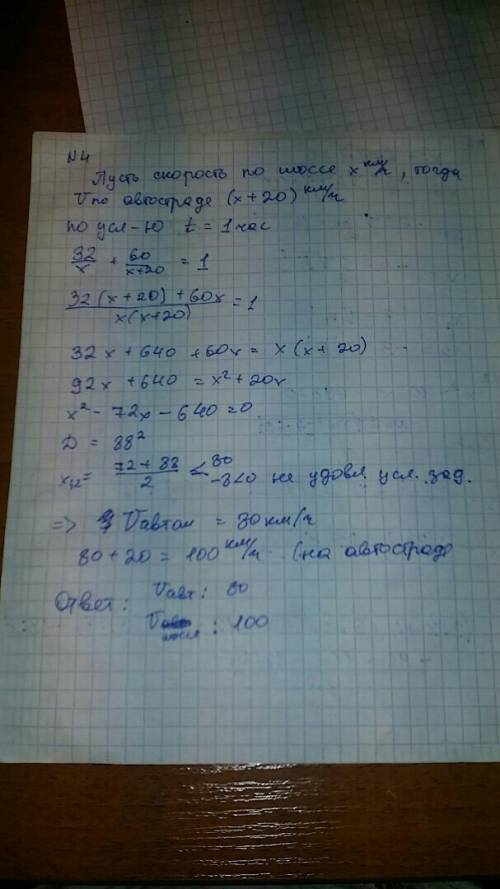 N4
Пусть скорость по шоссе x км/ч, тогда
V по автостраде (x+20) км/ч
по усл-ю t = 1 час
32/x + 60/(x+20) = 1
(32(x+20)+60x)/(x(x+20)) = 1
32x + 640 + 60x = x(x+20)
92x + 640 = x² + 20x
x² - 72x - 640 = 0
D = 88²
x₁,₂ = (72 ± 88)/2 < 80
-8<0 не удовл. усл. зад.
=> V автом = 80 км/ч
80 + 20 = 100 км/ч (на автостраде
Ответ: Vавт: 80
V шосс : 100